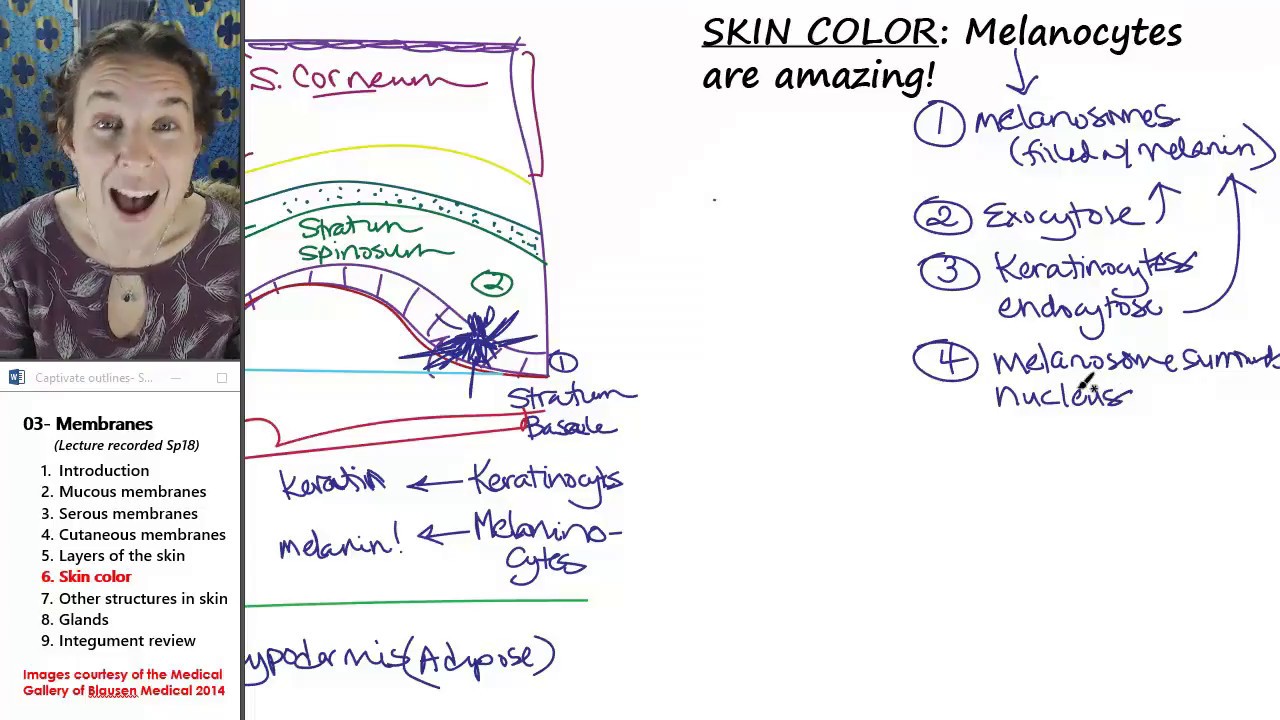 SKIN COLOR: Melanocytes
are amazing!
① melanosomes
(filled w/ melanin)
② Exocytose
③ Keratinocytes
endocytose
④ melanosome surrounds
nucleus
S. Corneum
Stratum
spinosum
②
①
Stratum
Basale
Keratin ← Keratinocyts
melanin! ← Melanino-
cytes
ypodermis (Adipose)
Captivate outlines- S...
03- Membranes
(Lecture recorded Sp18)
1. Introduction
2. Mucous membranes
3. Serous membranes
4. Cutaneous membranes
5. Layers of the skin
6. Skin color
7. Other structures in skin
8. Glands
9. Integument review
Images courtesy of the Medical
Gallery of Blausen Medical 2014